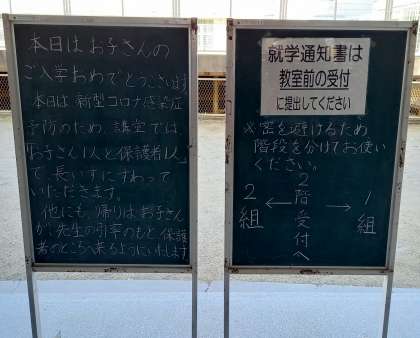 本日はお子さんの
ご入学おめでとうございます。
本日は、新型コロナ感染症
予防のため、講室では
「お子さん1人と保護者1人」
で、長いすにすわって
いただきます。
他にも、帰りはお子さん
が先生の引率のもと保護
者のところへ来るようにいたします
就学通知書は
教室前の受付
に提出してください
※密を避けるため
階段を分けてお使い
ください。
2組 ← 2階受付へ → 1組